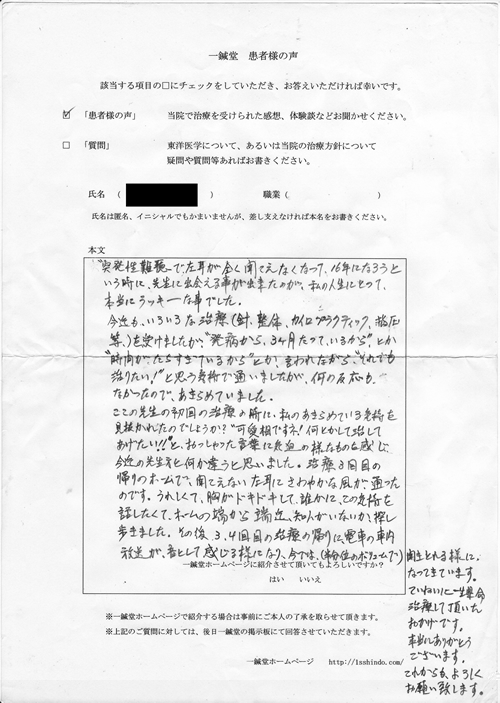 一鍼堂 患者様の声
該当する項目の□にチェックをしていただき、お答えいただければ幸いです。
☑ 「患者様の声」 当院で治療を受けられた感想、体験談などお聞かせください。
□ 「質問」 東洋医学について、あるいは当院の治療方針について
疑問や質問等あればお書きください。
氏名 ( ) 職業( )
氏名は匿名、イニシャルでもかまいませんが、差し支えなければ本名をお書きください。
本文
"突発性難聴"で左耳が全く聞こえなくなって、16年になろうと
いう時に、先生に出会える事が出来たのが、私の人生にとって、
本当にラッキーな事でした。
今迄も、いろいろな治療(針、整体、カイロプラクティック、指圧
等、)を受けましたが、"発病から、3ヶ月たっているから"とか
"時間が、たちすぎているから"とか、言われながら、"それでも
治りたい!"と思う気持で通いましたが、何の反応も、
なかったので、あきらめていました。
ここの先生の初回の治療の時に、私のあきらめている気持を
見抜かれたのでしょうか?"可愛想ですネ!何とかして治して
あげたい!!"と、おっしゃった言葉に気迫の様なものを感じ、
今迄の先生方と何か違うと思いました。治療3回目の
帰りのホームで、聞こえない左耳にさわやかな風が通った
のです。うれしくて、胸がドキドキして、誰かに、この気持を
話したくて、ホームの端から端迄、知人がいないか、探し
歩きました。その後、3、4回目の治療の帰りに、電車の車内
放送が、音として感じる様になり、今では、(半分位のボリュームで)
聞きとれる様に、
なってきています。
ていねいに一生懸命
治療して頂いた
おかげです。
本当にありがとう
ございます。
これからも、よろしく
お願い致します。
一鍼堂ホームページに紹介させて頂いてもよろしいですか?
はい いいえ
※一鍼堂ホームページで紹介する場合は事前にご本人の了承を取らせて頂きます。
※上記のご質問に対しては、後日一鍼堂の掲示板にて回答させていただきます。
一鍼堂ホームページ http://isshindo.com/